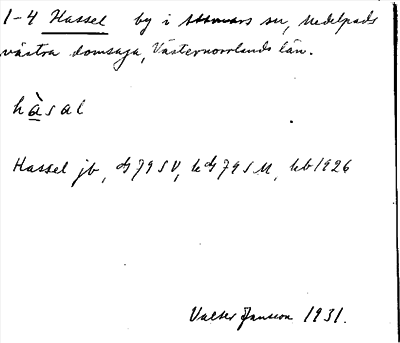 1-4 Hassel by i Attmars sn, Medelpads
västra domsaga, Västernorrlands län.
hàsal
Hassel jb, dg 79 SV, kdg 79 S M, kb 1926
Valter Jansson 1931.